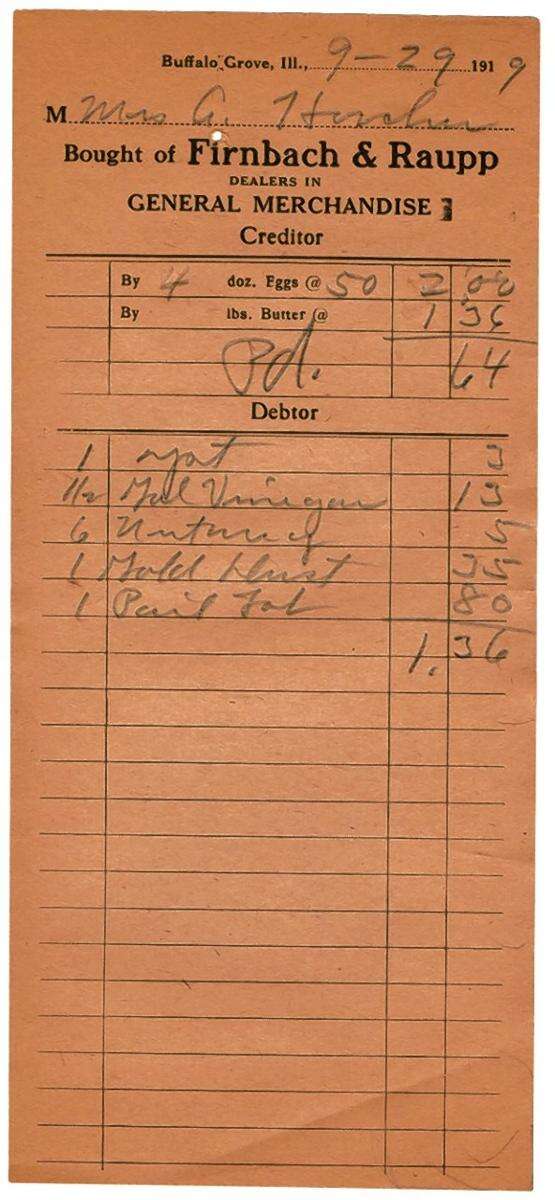 Buffalo Grove, Ill., 9-29 1919
M Mrs A.
Bought of Firnbach & Raupp
DEALERS IN
GENERAL MERCHANDISE
Creditor
By 4 doz. Eggs @ 50 2.00
By lbs. Butter @ 1 36
Pd. 64
Debtor
1 3
1/2 Gal Vinegar 13
6 Nutmeg 5
1 Gold Dust 35
1 Pail 80
1.36